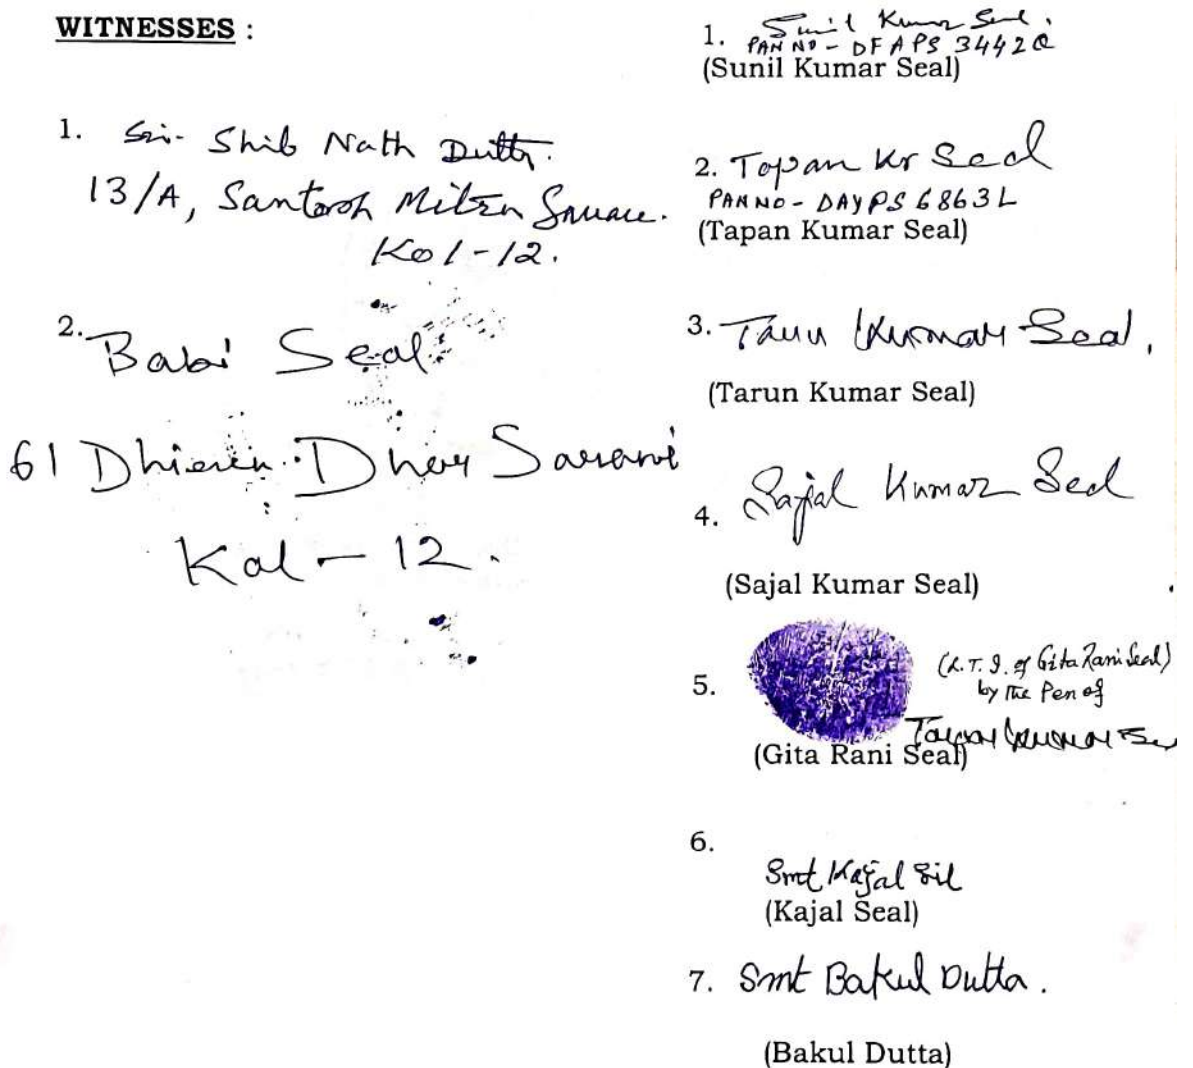 WITNESSES :
1. Sri- Shib Nath Dutta.
13/A, Santosh Mitra Square.
Kol-12.
2. Babi Seal
61 Dhiren Dhar Sarani
Kol - 12.
1. Sunil Kumar Seal.
PAN NO - DFAPS 3442Q
(Sunil Kumar Seal)
2. Topan Kr Seal
PAN NO - DAYPS 6863L
(Tapan Kumar Seal)
3. Tarun Kumar Seal.
(Tarun Kumar Seal)
4. Sajal Kumar Seal
(Sajal Kumar Seal)
5. (L.T.I. of Gita Rani Seal)
by the Pen of
Tapan Kumar Seal
(Gita Rani Seal)
6.
Smt Kajal Sil
(Kajal Seal)
7. Smt Bakul Dutta.
(Bakul Dutta)